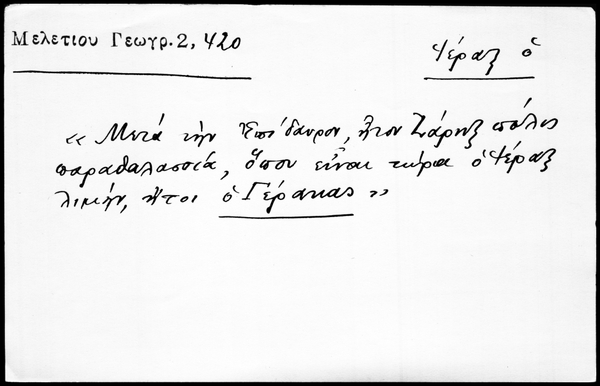 Μελετίου Γεωγρ. 2, 420
Ἱέραξ ὁ
« Μετά τήν Ἐπίδαυρον, ἦτον Ζάρηξ πόλις
παραθαλασσία, ὅπου εἶναι τώρα ὁ Ἱέραξ
λιμήν, ἤτοι ὁ Γέρακας »